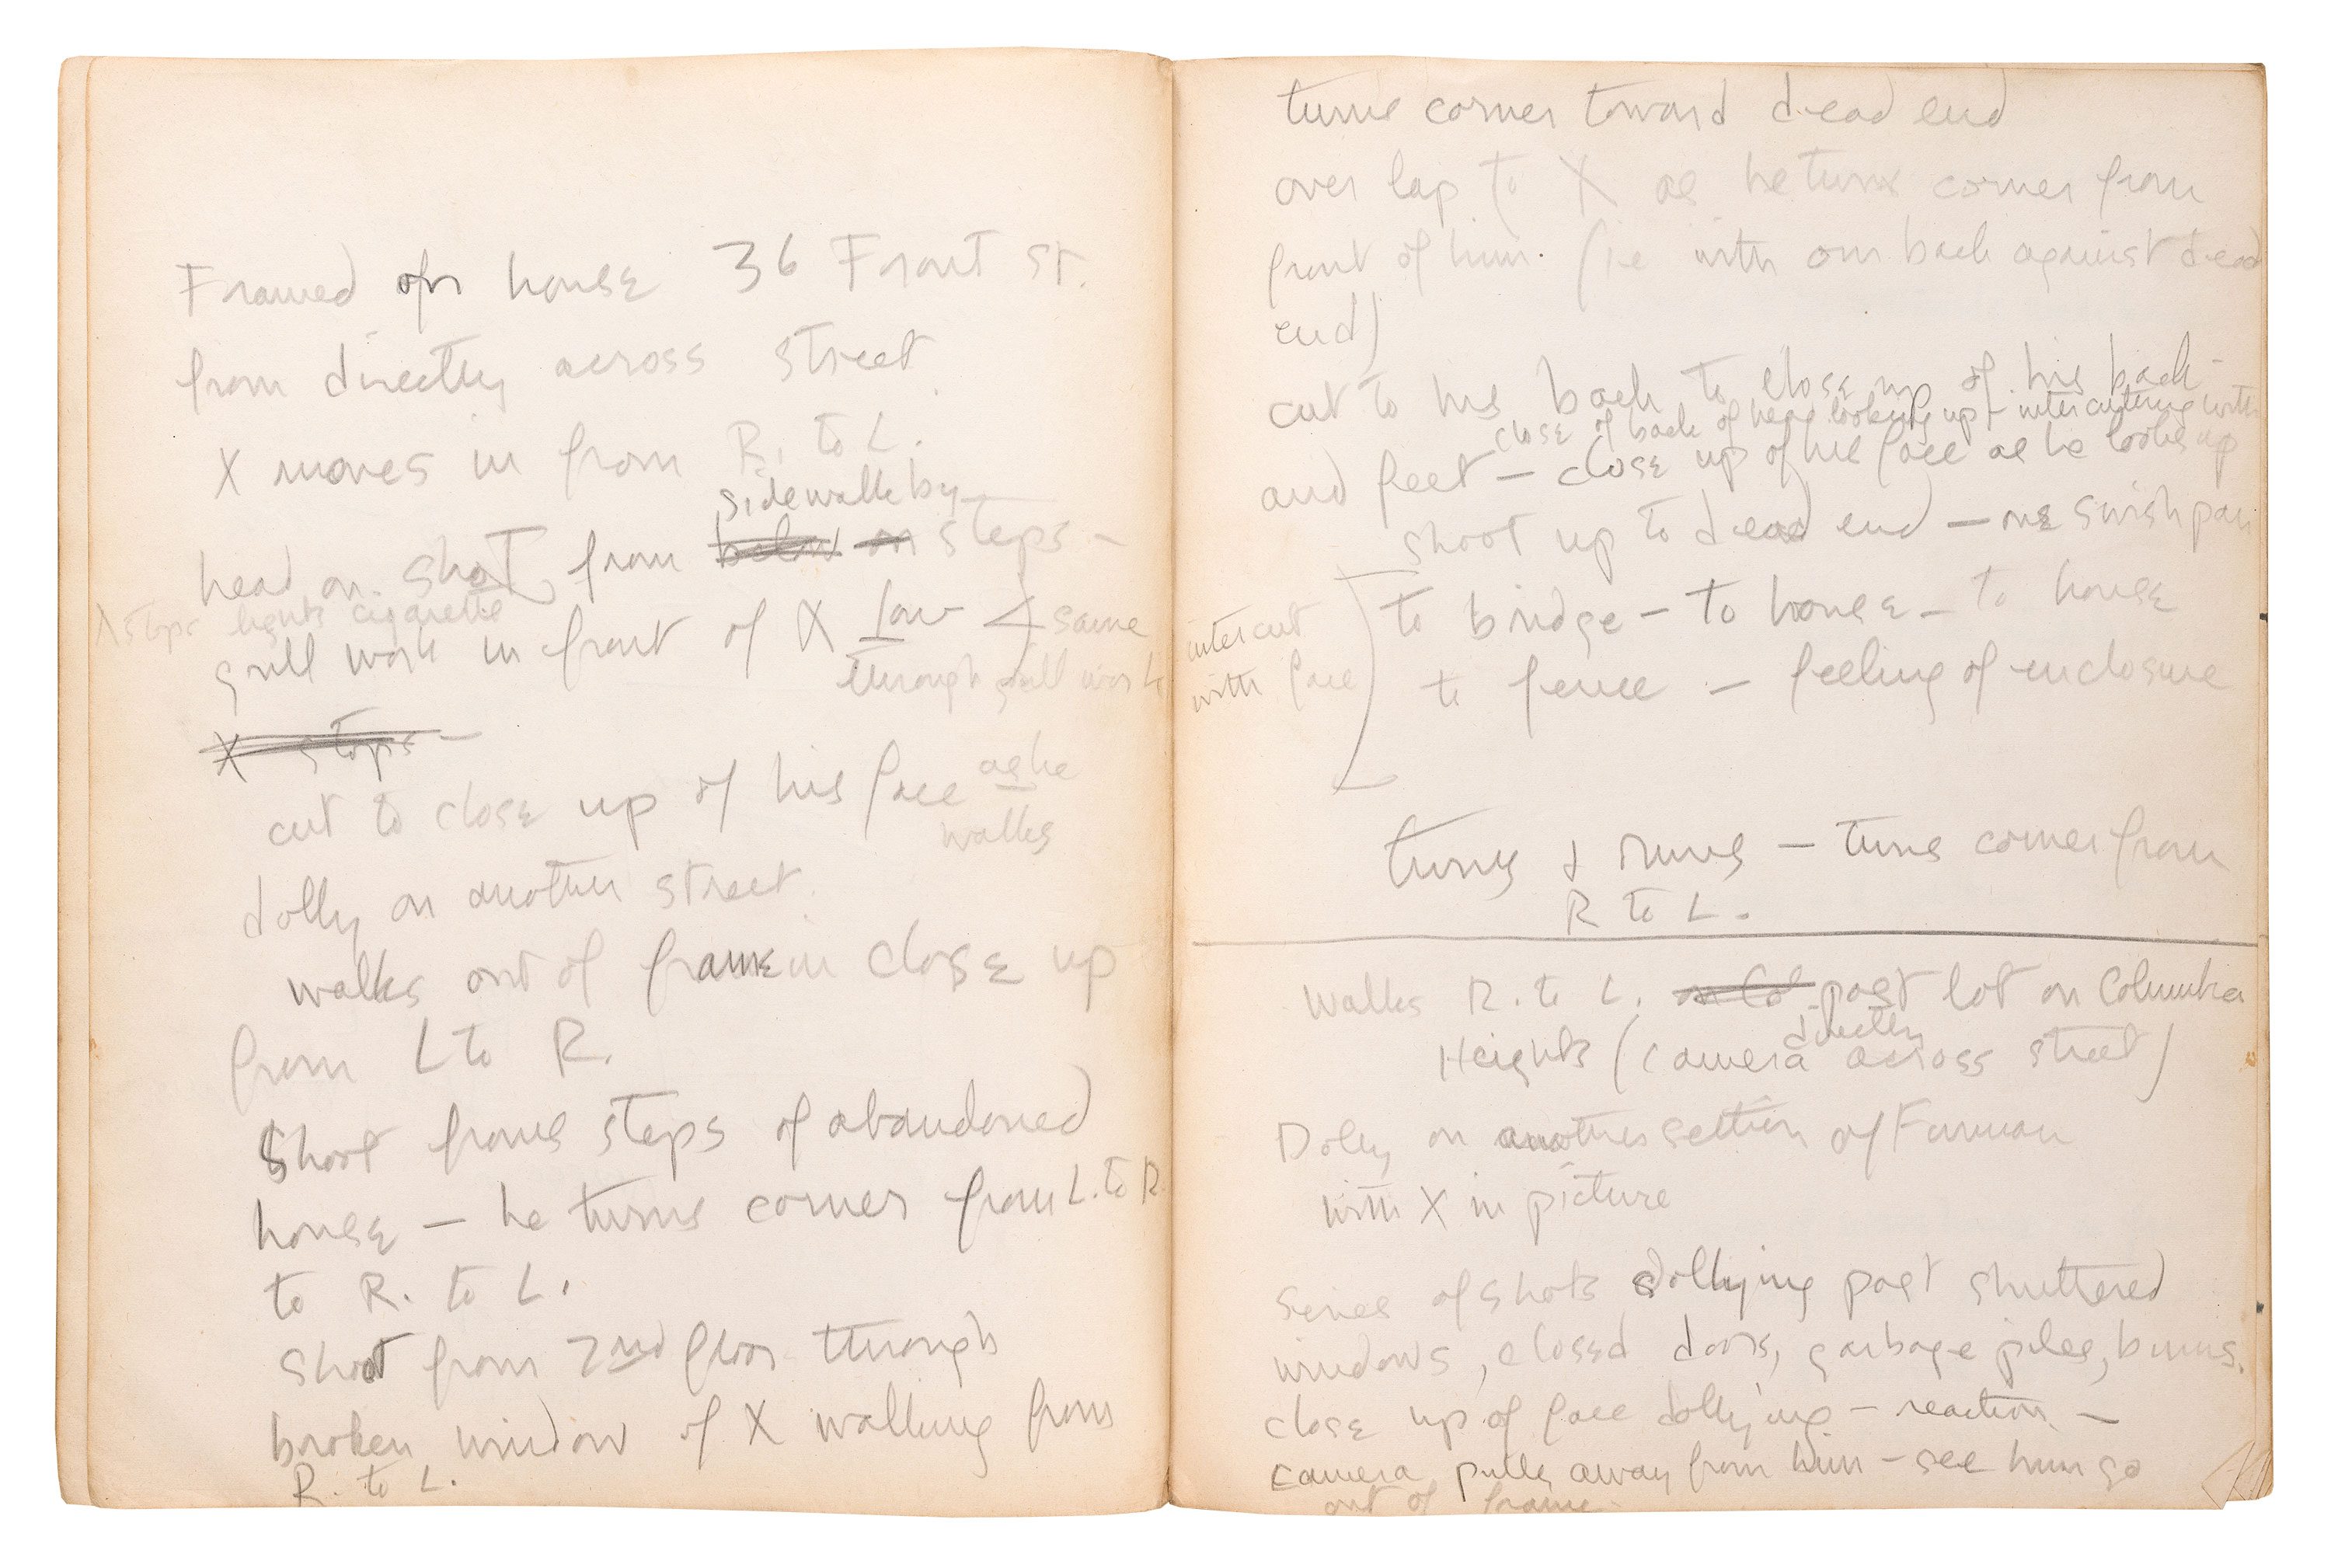 Framed on house 36 Front St.
from directly across street.
X moves in from R. to L.
sidewalk by
head on shot from below on steps –
X stops lights cigarette
grill work in front of X Low ∠ same
through grill work
X stops –
cut to close up of his face as he
walks
dolly on another street.
walks out of frame in close up
from L to R.
Shoot from steps of abandoned
house – he turns corner from L. to R.
to R. to L.
Shoot from 2nd floor through
broken window of X walking from
R. to L.
turns corner toward dead end
over lap to X as he turns corner from
front of him. (ie with our back against dead
end)
cut to his back to close up of his back –
close of back of head looking up – intercutting with
and feet – close up of his face as he looks up
shoot up to dead end – one swish pan
to bridge – to house – to house
intercut
with face
to fence – feeling of enclosure
turns & runs – turns corner from
R to L.
Walks R. to L. on Col past lot on Columbia
directly
Heights (camera across street)
Dolly on another section of Furman
with X in picture
Series of shots dollying past shuttered
windows, closed doors, garbage piles, bums.
close up of face dollying – reaction –
camera pulls away from him – see him go
out of frame.